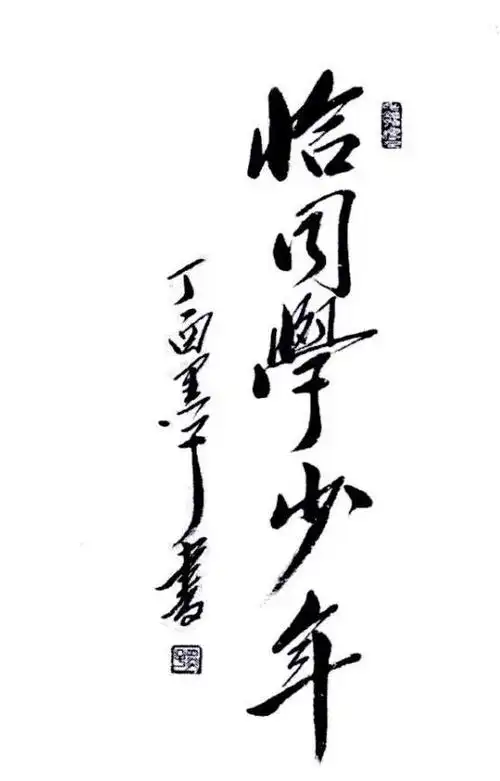 恰同學少年
丁酉墨子書